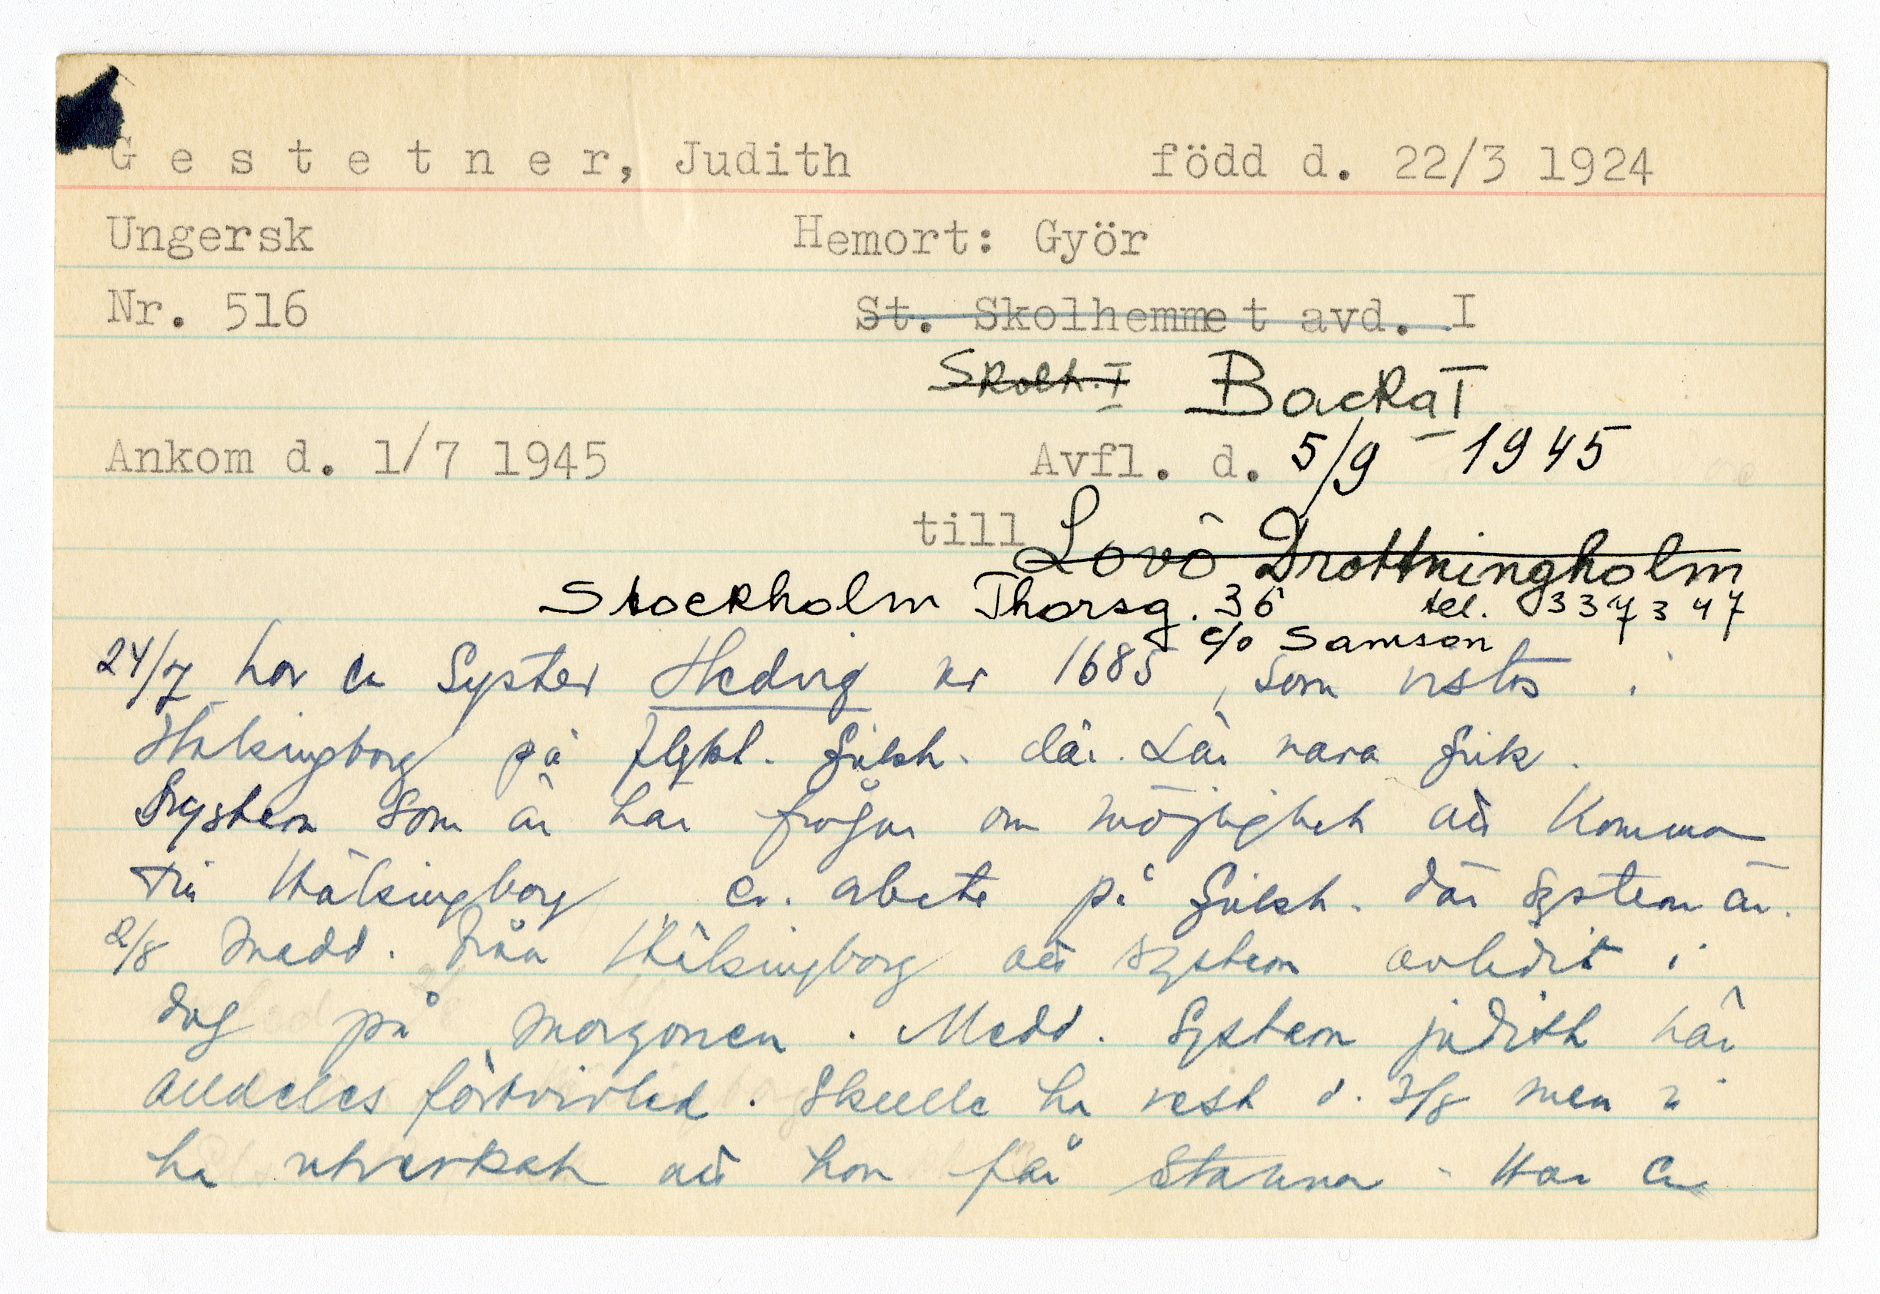 Gestetner, Judith född d. 22/3 1924
Ungersk Hemort: Györ
Nr. 516 St. Skolhemmet avd. I
Skolh. I Backa I
Ankom d. 1/7 1945 Avfl. d. 5/9 1945
till Lovö Drottningholm
Stockholm Thorsg. 36 tel. 337347
c/o Samson
24/7 har en Syster Hedvig nr 1685, som vistas i
Hälsingborg på flykt. sjukh. där. Lär vara sjuk.
Systern som är här frågar om möjlighet att komma
till Hälsingborg ev. arbete på sjukh. där systern är.
2/8 Medd. från Hälsingborg att systern avlidit i
dag på morgonen. Medd. Systern judith här
alldeles förtvivlad. Skulle ha rest d. 3/8 men vi
ha utverkat att hon får stanna - Har en